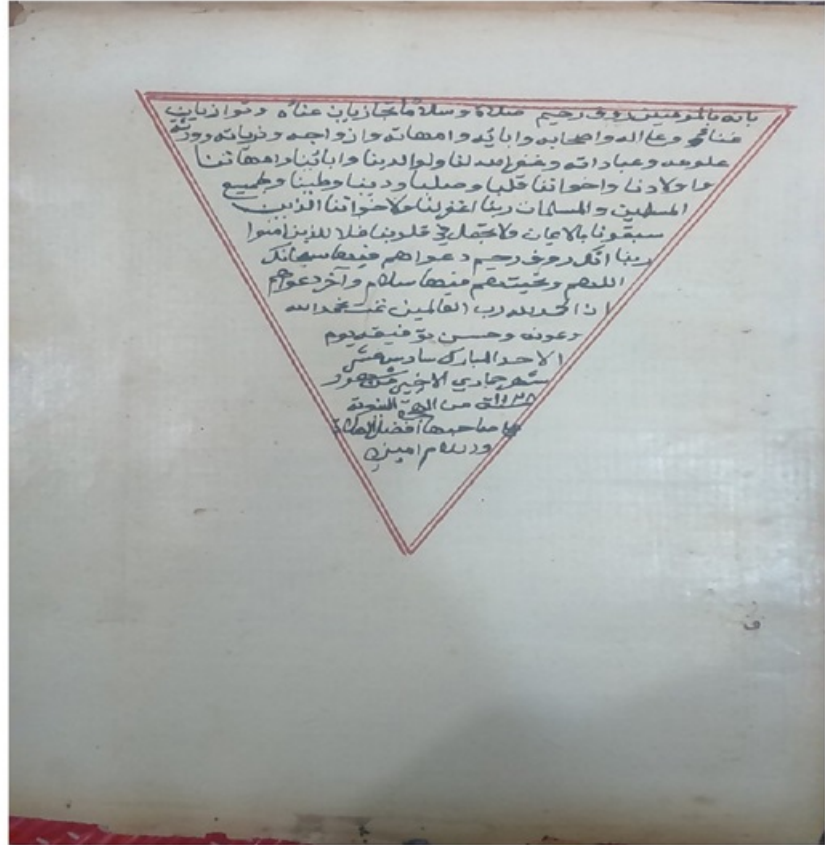 بانه بالمومنين روف رحيم صلاة وسلاما يجازيان عناه وتوازيان
وعلى اله واصحابه وابائه وامهاته وازواجه وذرياته وورثة
علومه وعباداته وغفر الله لنا ولوالدينا وابائنا وامهاتنا
واولادنا واخواتنا قلبا وصلبا ودينا وطينا وجميع
المسلمين والمسلمات ربنا اغفر لنا ولاخواننا الذين
سبقونا بالايمان ولا تجعل في قلوبنا غلا للذين امنوا
ربنا انك روف رحيم دعواهم فيها سبحانك
اللهم وتحيتهم فيها سلام وآخر دعواهم
ان الحمد لله رب العالمين تمت بحمد الله
وعونه وحسن توفيقه يوم
الاحد المبارك سادس عشر
شهر جمادي الاخير من شهور
سنة من الهجرة النبوية
على صاحبها أفضل الصلاة
والسلام امين